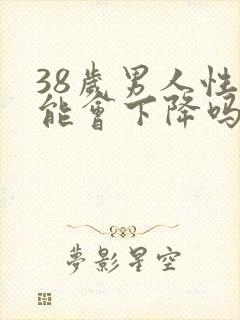 38歲男人性
能會下降嗎
夢影星空